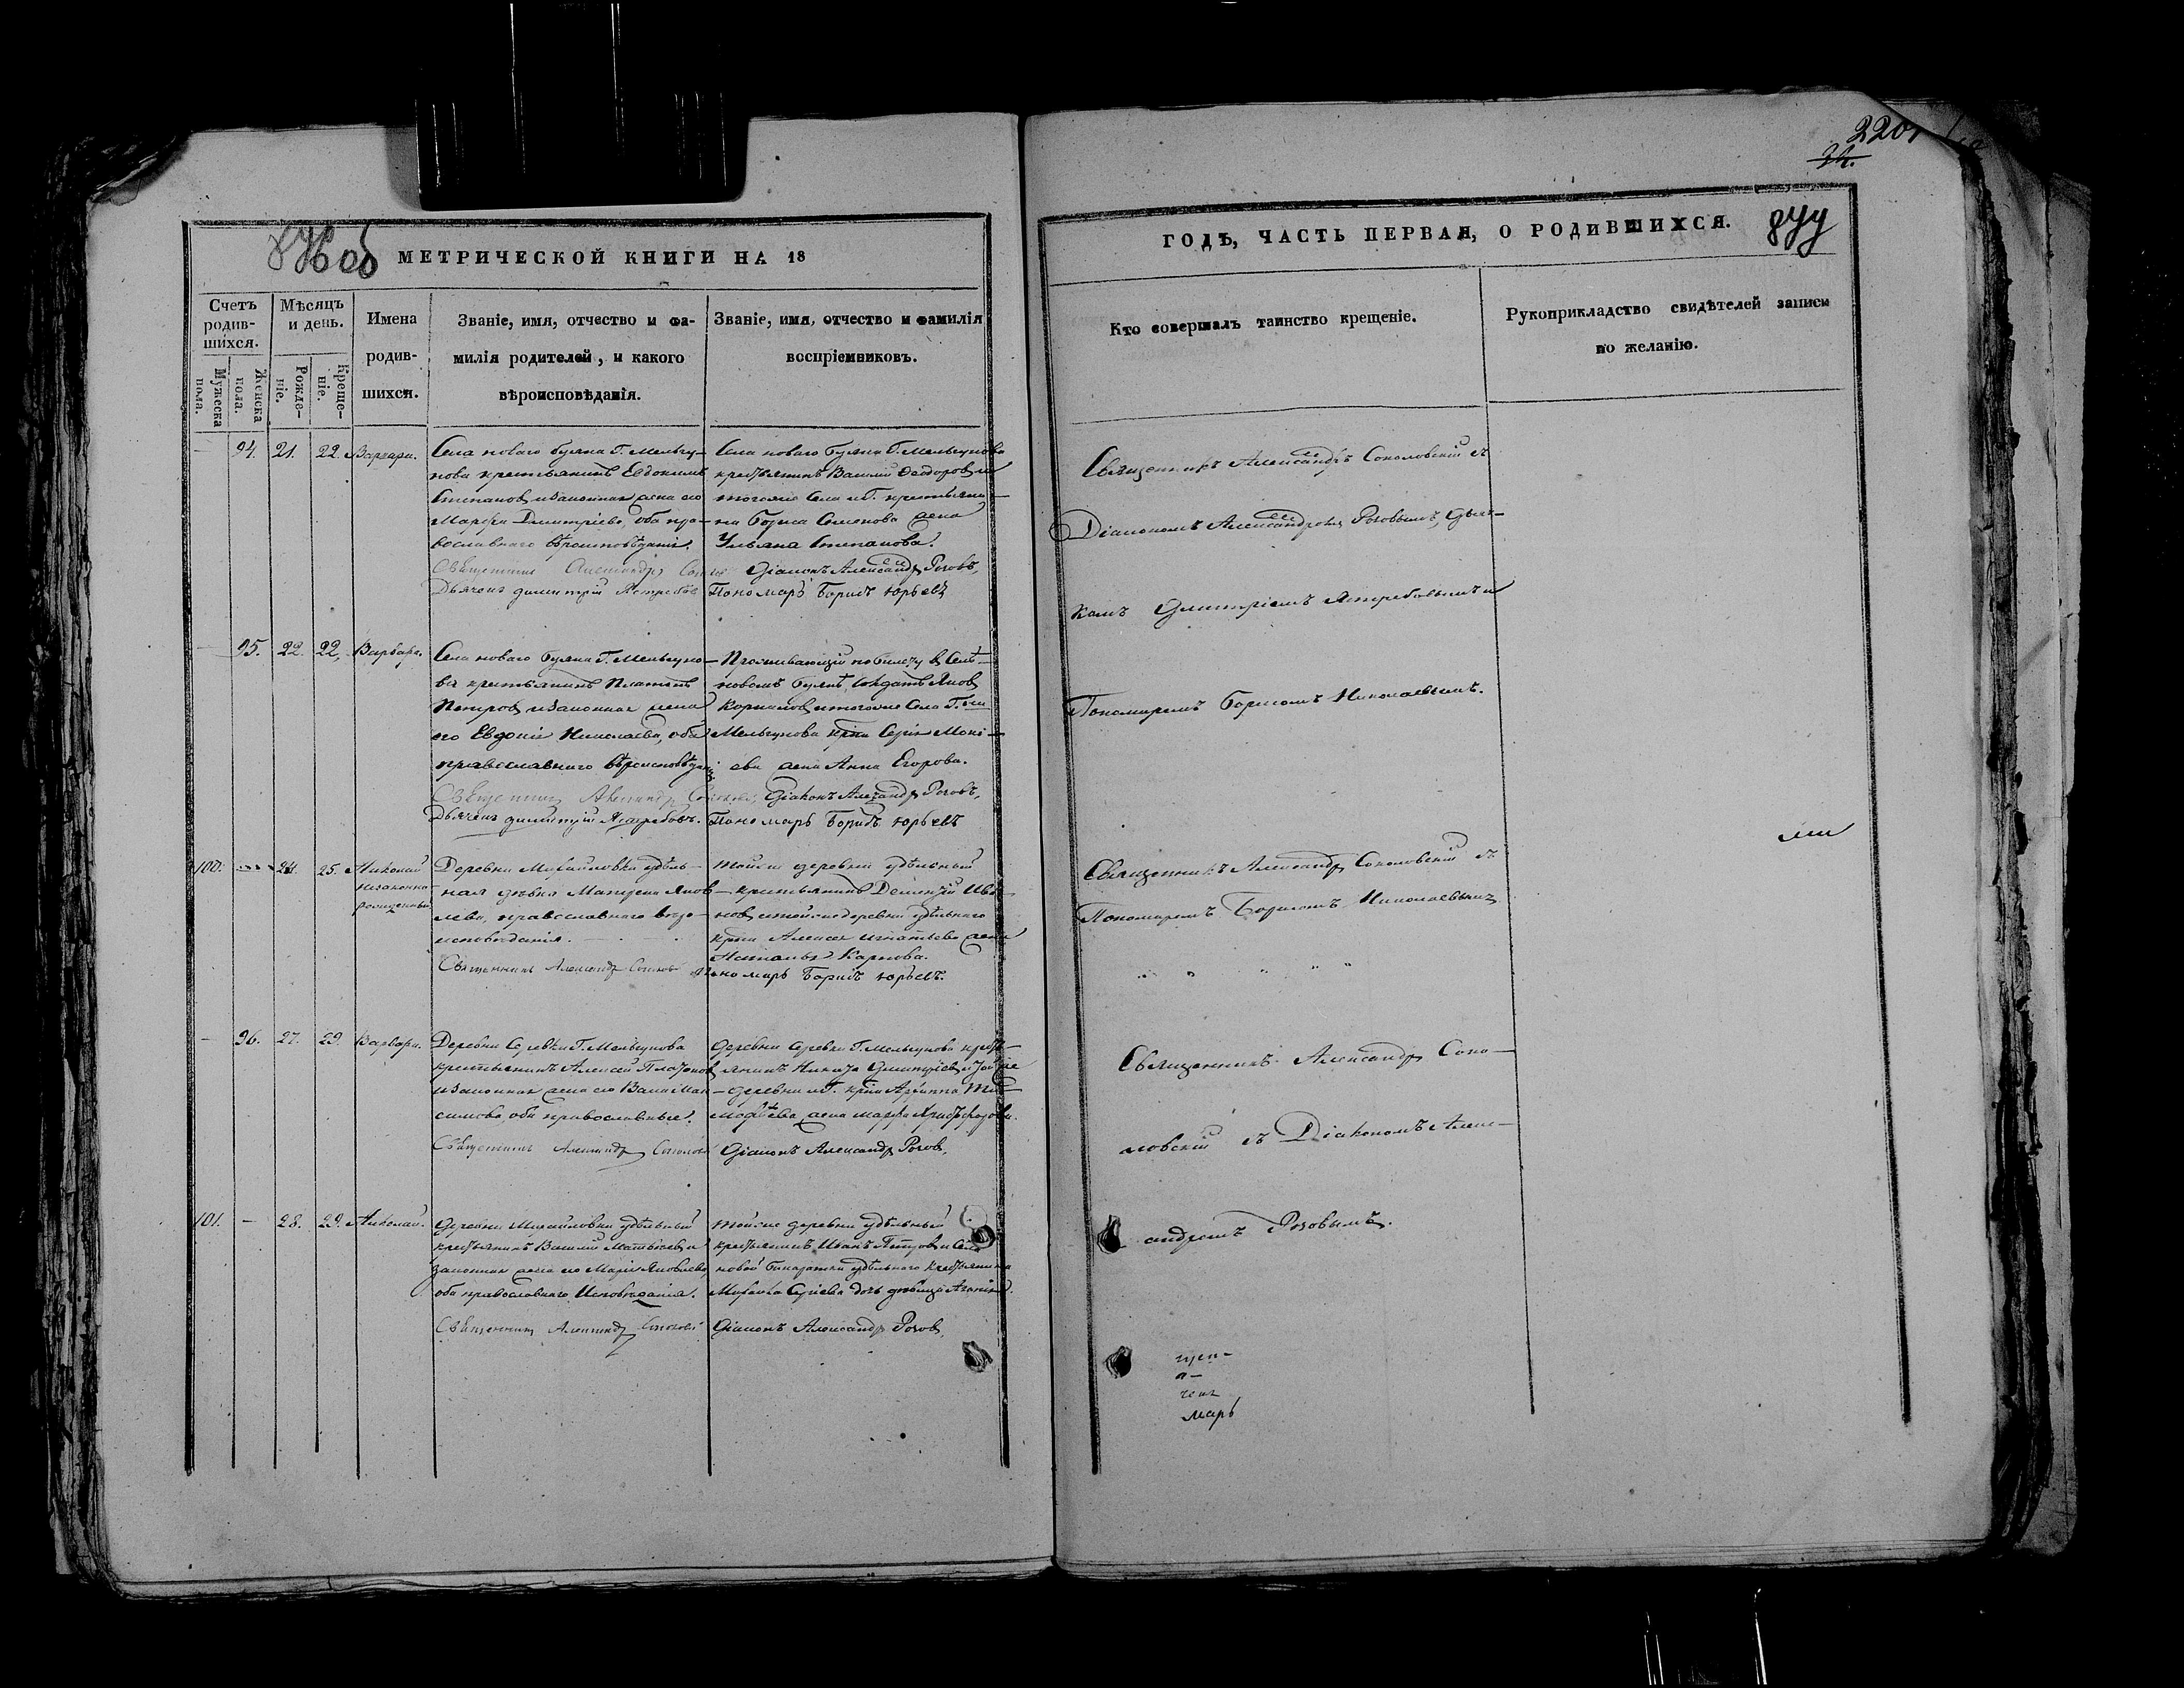 876 об
МЕТРИЧЕСКОЙ КНИГИ НА 18
Счетъ родив-шихся.
Мужеска пола.
Женска пола.
Мѣсяцъ и день.
Рожде-ніе.
Креще-ніе.
Имена
родив-
шихся.
Званіе, имя, отчество и фа-
милія родителей, и какого
вѣроисповѣданія.
Званіе, имя, отчество и фамилія
воспріемниковъ.
94. 21. 22. Варвара.
Села новаго буяна Г. Мельгу-
нова крестьянинъ Евдокимъ
Степановъ и законная жена его
Марфа Дмитріева, оба пра-
вославнаго вѣроисповѣданія.
Священникъ Александръ
Дьячекъ Димитрій Ястребовъ
Села новаго буяна Г. Мельгунова
крестьянинъ Василій Ѳеодоровъ и
тогоже Села и Г. крестьяни-
на Бориса Семенова жена
Ульяна Степанова.
Діаконъ Александръ Роговъ,
Пономарь Борисъ Юрьевъ
95. 22. 22. Варвара.
Села новаго буяна Г. Мельгуно-
ва крестьянинъ Платонъ
Петровъ и законная жена
его Евдокія Николаева, оба
православнаго вѣроисповѣданія
Священникъ Александръ
Дьячекъ Димитрій Ястребовъ.
Проживающій по билету въ Селѣ
новомъ буянѣ, Солдатъ Яковъ
Корниловъ и тогоже Села Г.
Мельгунова
жена Анна Егорова.
Діаконъ Александръ Роговъ,
Пономарь Борисъ Юрьевъ
100. 24. 25. Николай
незаконно-
рожденный
Деревни Михайловки удѣль-
ная дѣвка Матрена Яков-
лева, православнаго вѣро-
исповѣданія.
Священникъ Александръ
тойже деревни удѣльный
крестьянинъ Дементій Ива-
новъ и тойже деревни удѣльнаго
Алексея Игнатьева жена
Наталья Карпова.
Пономарь Борисъ Юрьевъ.
96. 27. 29. Варвара.
Деревни Г. Мельгунова
крестьянинъ Алексей Платоновъ
и законная жена его
симова оба православные.
Священникъ Александръ
деревни Г. Мельгунова кресть-
янинъ Никита Дмитріевъ и
деревни и Г.
жена Марфа
Діаконъ Александръ Роговъ,
101. - 28. 29. Николай.
Деревни Михайловки удѣльный
крестьянинъ Василій Матвѣевъ и
законная жена его Марія Яковлева,
оба православнаго Исповѣданія.
Священникъ Александръ
тойже деревни удѣльный
крестьянинъ Иванъ Петровъ и Села
новой Бинарадки удѣльнаго крестьянина
Михаила дочь дѣвица
Діаконъ Александръ Роговъ,
2207
ГОДЪ, ЧАСТЬ ПЕРВАЯ, О РОДИВШИХСЯ.
877
Кто совершалъ таинство крещеніе.
Рукоприкладство свидѣтелей записи
по желанію.
Священникъ Александръ Соколовскій съ
Діакономъ Александромъ Роговымъ, Дьяч-
комъ Дмитріемъ Ястребовымъ и
Пономаремъ Борисомъ Николаевымъ.
Священникъ Александръ Соколовскій съ
Пономаремъ Борисомъ Николаевымъ
Священникъ Александръ Соко-
ловскій съ Діакономъ Алек-
сандромъ Роговымъ.
щен-
а-
чекъ
марь